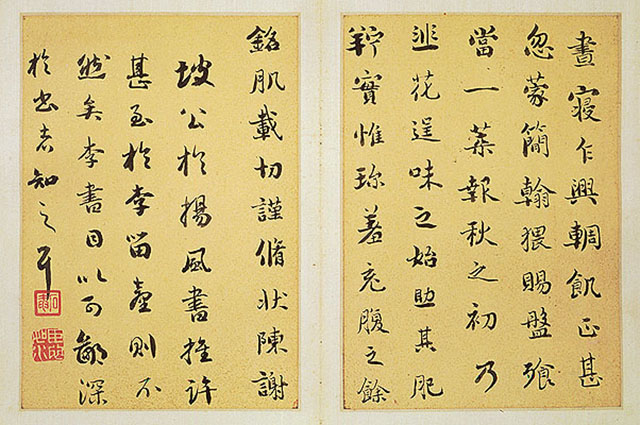 晝寢乍興輖飢正甚
忽蒙簡翰猥賜盤飧
當一葉報秋之初乃
韭花逞味之始助其肥
羜實惟珍羞充腹之餘
銘肌載切謹脩狀陳謝
坡公於楊風書推許
甚至於李留臺則不
然矣李書目以可鄙深
於書者知之耳